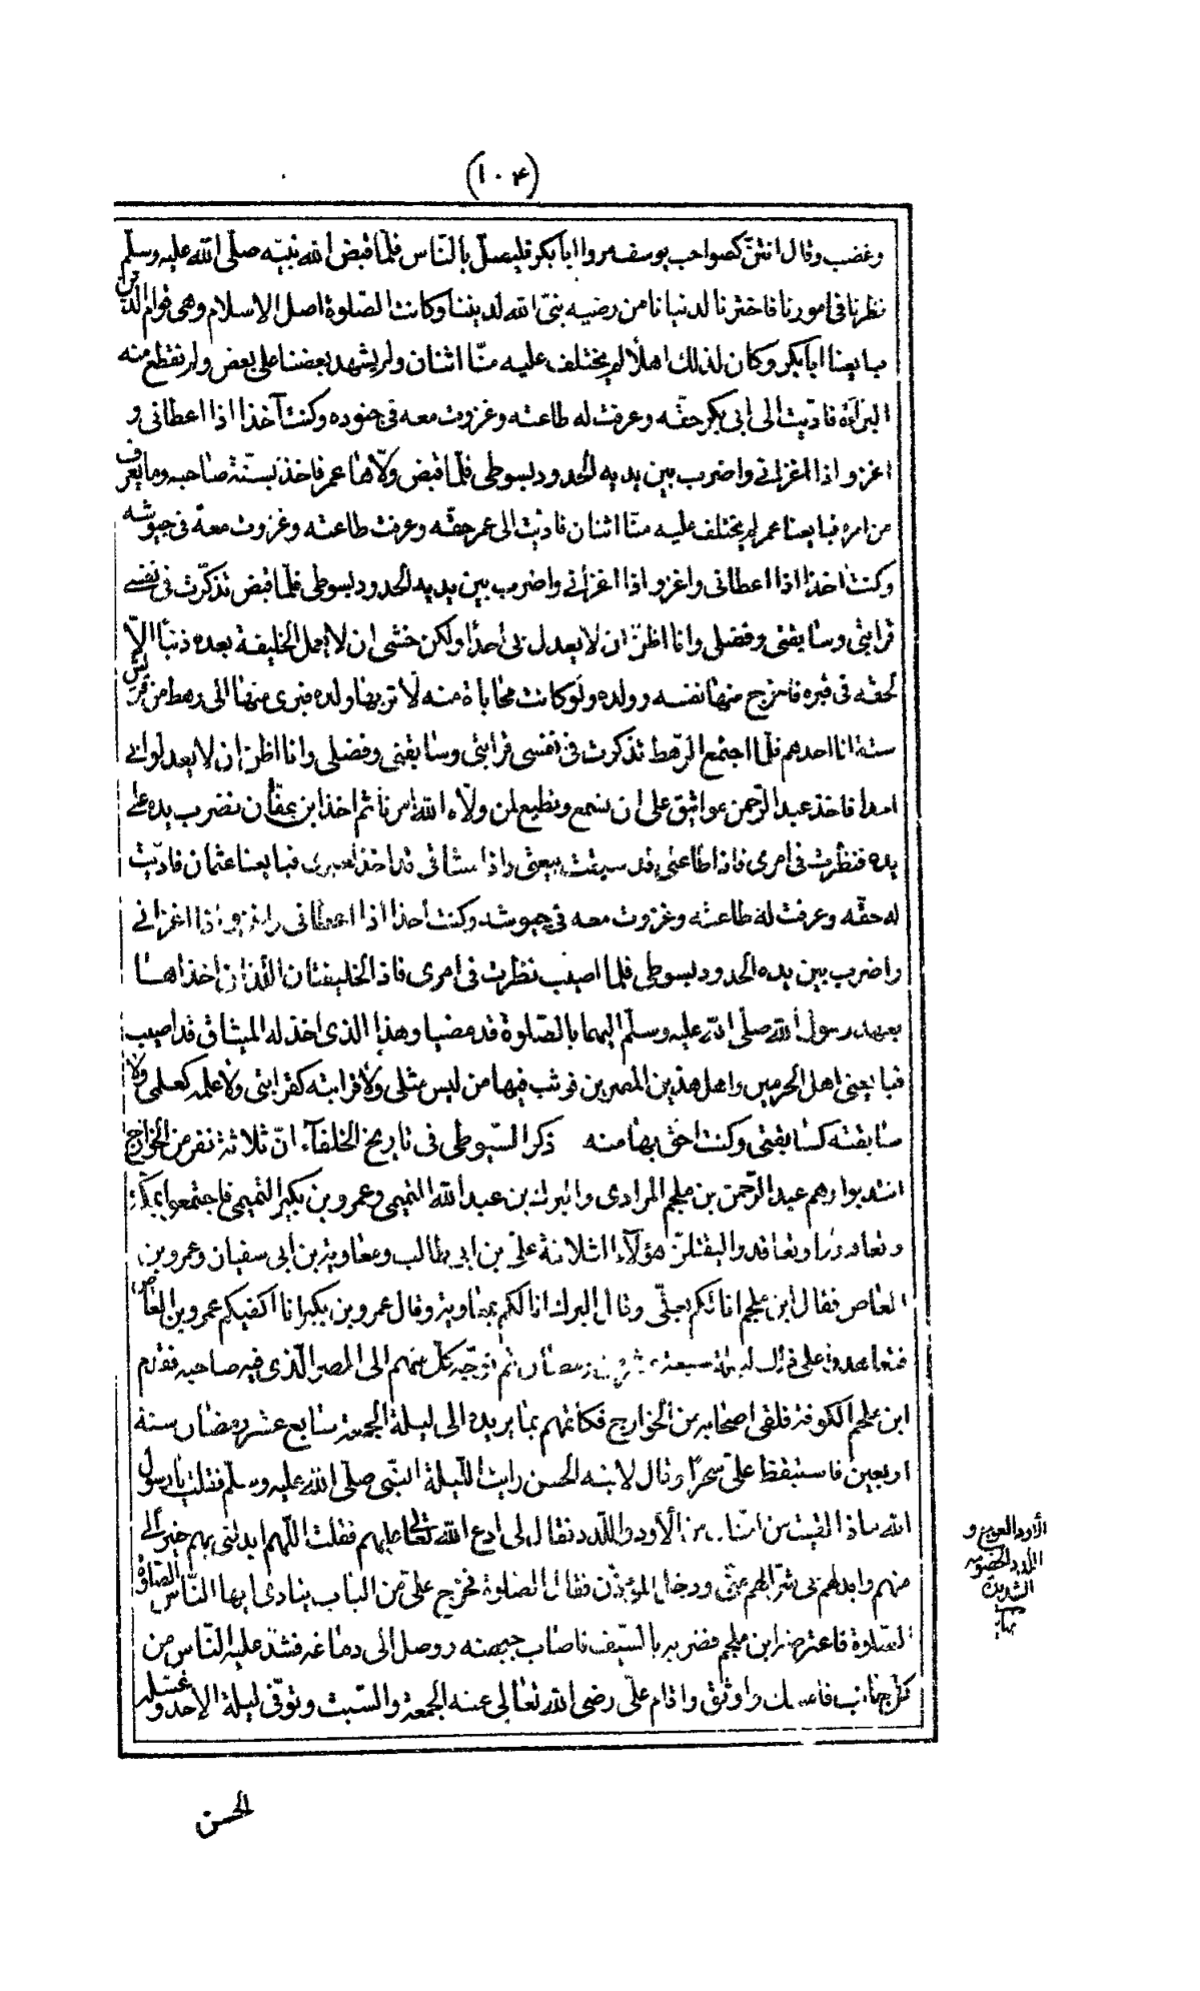 (١٠٤)
وغضب وقال انتنّ كصواحب يوسف مروا ابا بكر فليصلّ بالنّاس فلمّا قبض الله نبيّه صلّى الله عليه وسلّم
نظرنا فى امورنا فاخترنا لدنيانا من رضيه نبىّ الله لديننا وكانت الصّلوة اصل الاسلام وهى قوام الدّين
فبايعنا ابا بكر وكان لذلك اهلًا لم يختلف عليه منّا اثنان ولم يشهد بعضنا على بعض ولم نقطع منه
البرآءة فادّيت الى ابى بكر حقّه وعرفت له طاعته وغزوت معه فى جنوده وكنت آخذ اذا اعطانى و
اغزو اذا اغزانى واضرب بين يديه الحدود بسوطى فلمّا قبض ولّاها عمر فاخذ بسنّة صاحبه وما يعرف
من امره فبايعنا عمر لم يختلف عليه منّا اثنان فادّيت الى عمر حقّه وعرفت طاعته وغزوت معه فى جيوشه
وكنت آخذ اذا اعطانى واغزو اذا اغزانى واضرب بين يديه الحدود بسوطى فلمّا قبض تذكّرت فى نفسى
قرابتى وسابقتى وفضلى وانا اظنّ ان لا يعدل بى أحدًا ولكن خشى ان لا يعمل الخليفة بعده ذنبًا الّا
لحقه فى قبره فاخرج منها نفسه وولده ولو كانت محاباة منه لآثر بها ولده فبرى منها الى رهط من قريش
ستة انا احدهم فلما اجتمع الرّهط تذكرت فى نفسى قرابتى وسابقتى وفضلى وانا اظن ان لا يعدلوا بى
احدا فاخذ عبد الرّحمن مواثيق على ان نسمع ونطيع لمن ولّاه الله امرنا ثم اخذ ابن عفّان فضرب يده على
يده فنظرت فى امرى فاذا طاعتى قد سبقت بيعتى واذا ميثاقى قد اخذ لغيرى فبايعنا عثمان فادّيت
له حقّه وعرفت له طاعته وغزوت معه فى جيوشه وكنت آخذ اذا اعطانى واغزو اذا اغزانى
واضرب بين يده الحدود بسوطى فلما اصيب نظرت فى امرى فاذ الخليفتان اللّذان اخذاها
بعهد رسول الله صلّى الله عليه وسلّم اليهما بالصّلوة قد مضيا وهذا الذى اخذ له الميثاق قد اصيب
فبايعنى اهل الحرمين واهل هذين المصرين فوثب فيها من ليس مثلى ولا قرابته كقرابتى ولا علمه كعلمى ولا
سابقته كسابقتى وكنت احقّ بها منه ذكر السّيوطى فى تاريخ الخلفآء انّ ثلاثة نفر من الخوارج
انتدبوا وهم عبد الرّحمن بن ملجم المرادى والبرك بن عبد الله التميمى وعمرو بن بكير التميمى فاجتمعوا بمكّة
وتعاهدوا وتعاقدوا ليقتلنّ هؤلآء الثلاثة علىّ بن ابى طالب ومعاوية بن ابى سفيان وعمرو بن
العاص فقال ابن ملجم انا لكم بعلىّ وقال البرك انا لكم بمعاوية وقال عمرو بن بكير انا اكفيكم عمرو بن العاص
فتعاهدوا على ذلك ليلة سبعة عشر من رمضان ثم توجّه كلّ منهم الى المصر الّذى فيه صاحبه فقدم
ابن ملجم الكوفة فلقى اصحابه من الخوارج فكاتمهم بما يريده الى ليلة الجمعة سابع عشر رمضان سنة
اربعين فاستيقظ علىّ سحرًا وقال لابنه الحسن رايت اللّيلة النّبى صلّى الله عليه وسلّم فقلت يا رسول
الله ماذا لقيت من امّتك من الأود واللّدد فقال لى ادع الله تعالى عليهم فقلت اللّهم ابدلنى بهم خيرا لى
منهم وابدلهم بى شرا لهم منّى ودخل المؤذّن فقال الصّلوة فخرج علىّ من الباب ينادى ايها النّاس الصّلوة
الصّلوة فاعترضه ابن ملجم فضربه بالسّيف فاصاب جبهته ووصل الى دماغه فشدّ عليه النّاس من
كلّ جانب فامسك واوثق واقام علىّ رضى الله تعالى عنه الجمعة والسّبت وتوفّى ليلة الاحد وغسّله
الأود العوج و
اللدد الخصومة
الشديدة
الحسن